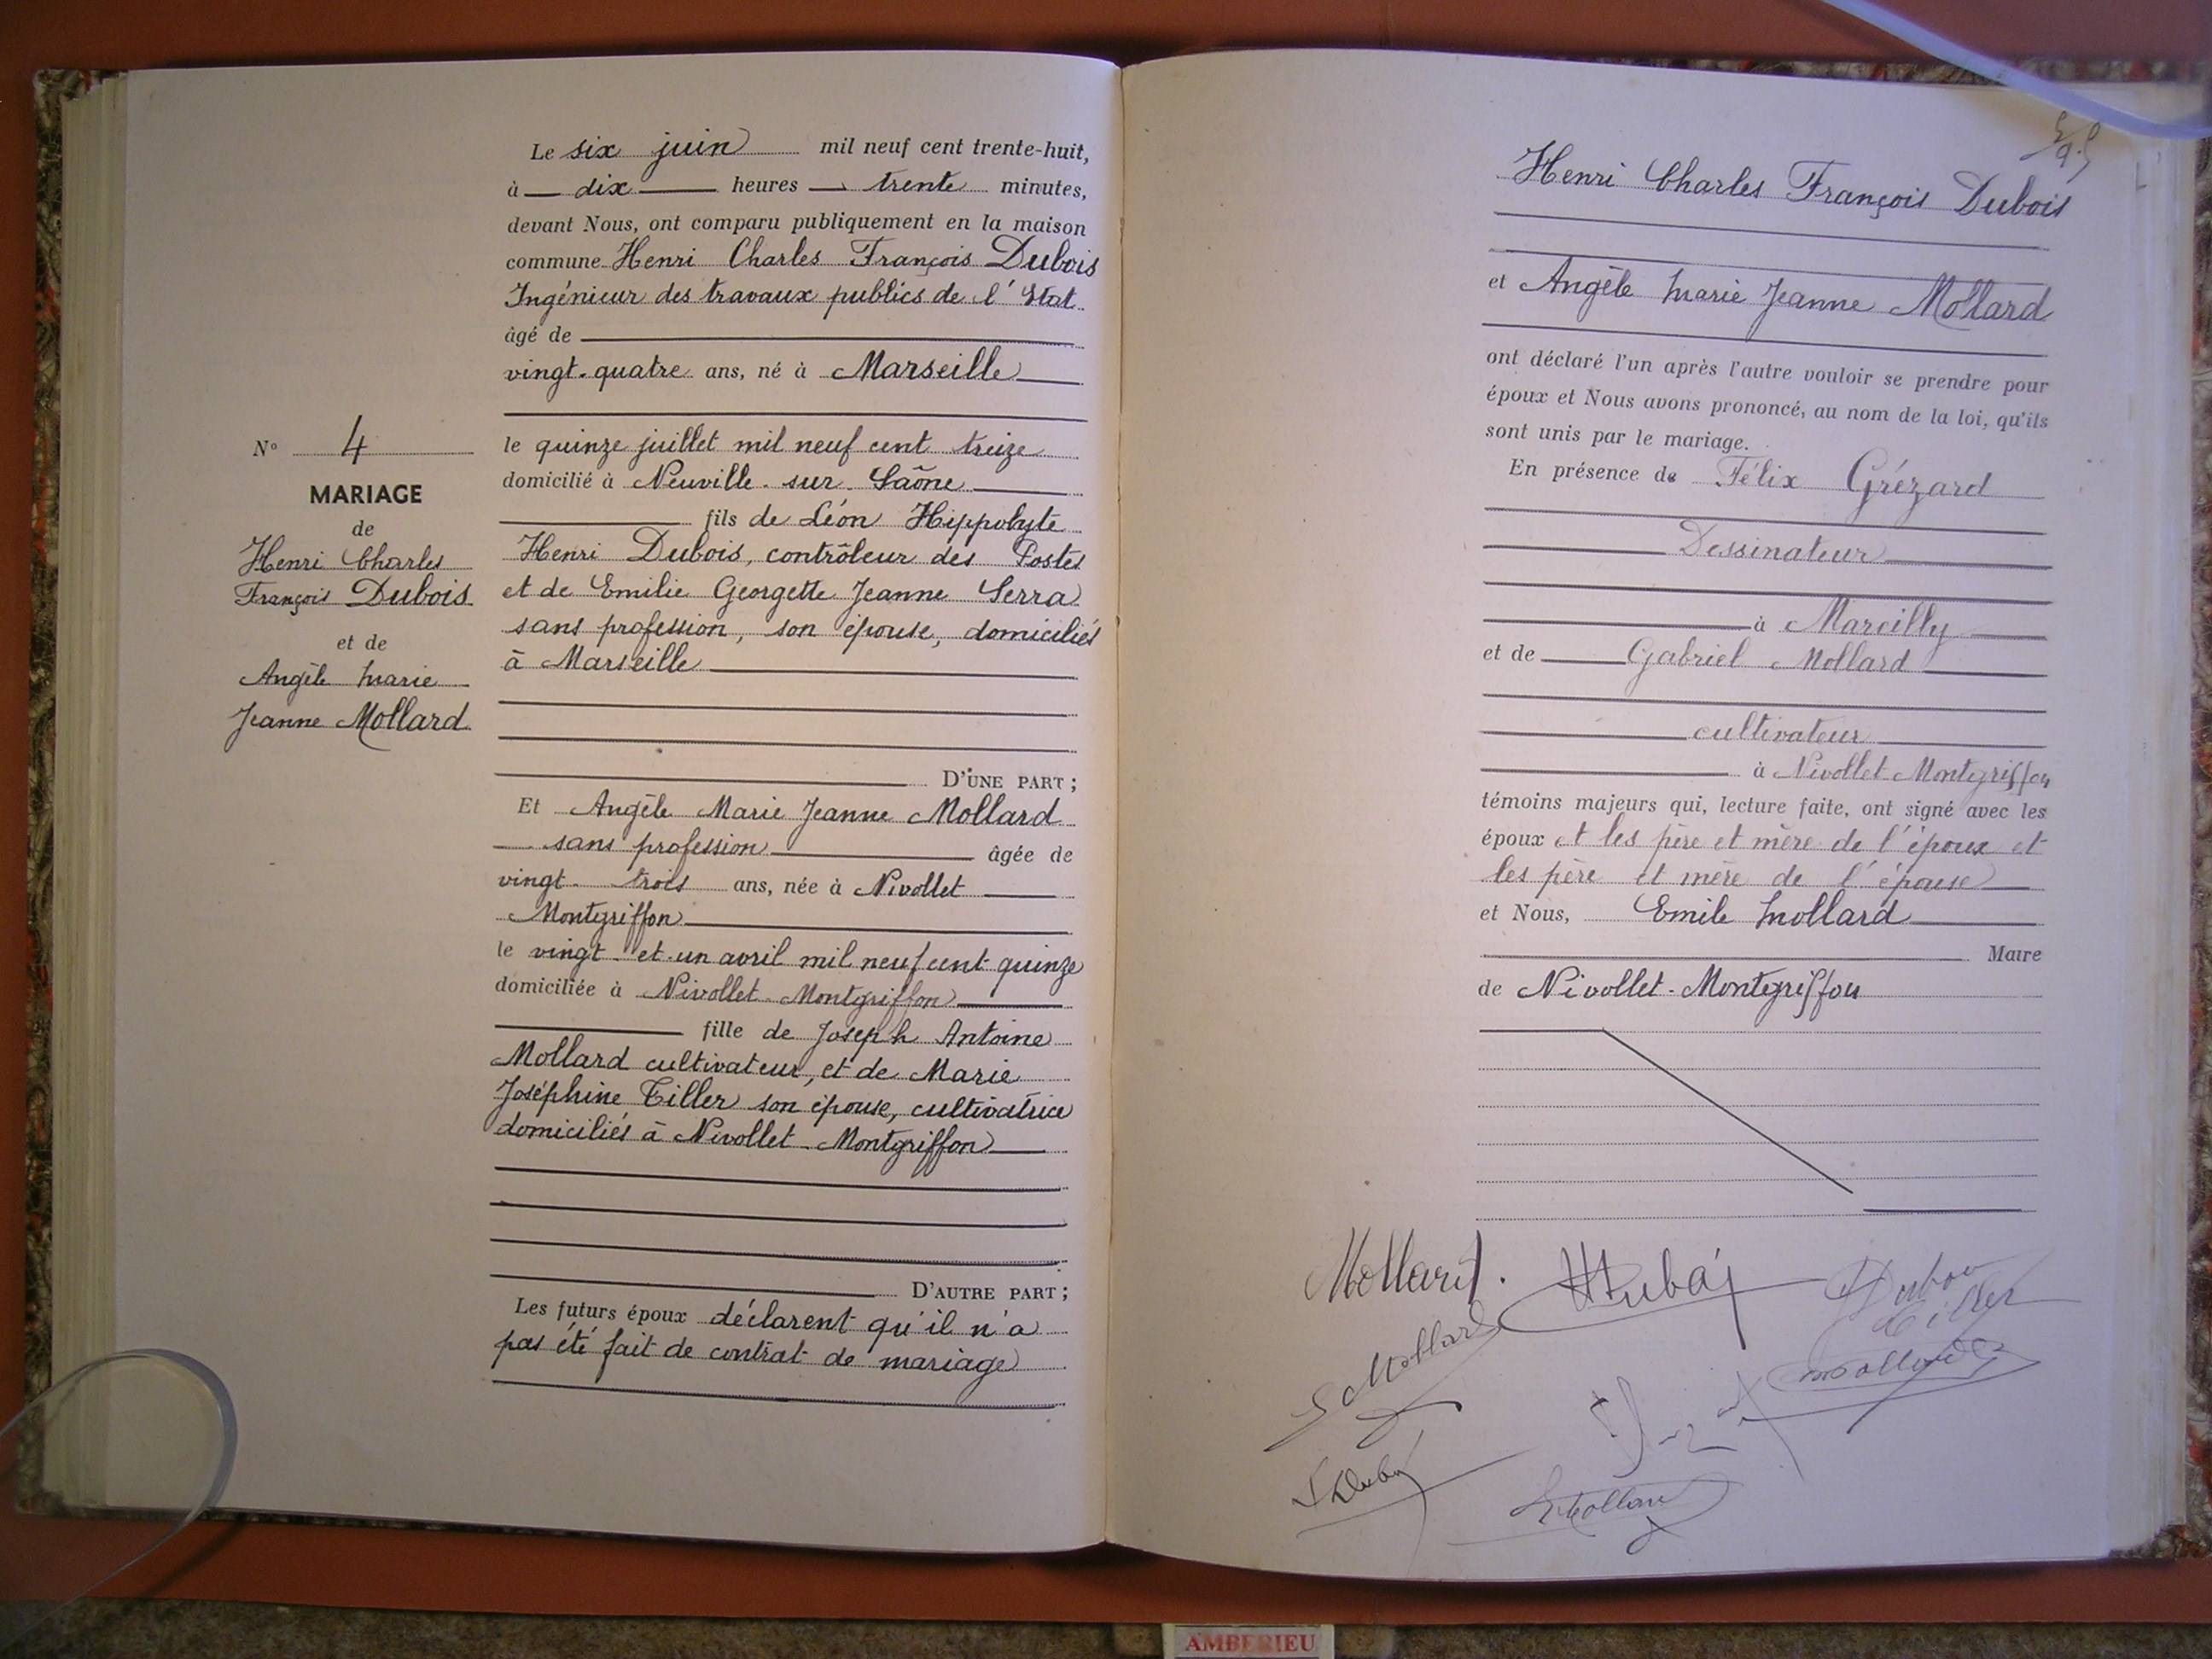 Le six juin mil neuf cent trente-huit,
à dix heures trente minutes,
devant Nous, ont comparu publiquement en la maison
commune Henri Charles François Dubois
Ingénieur des travaux publics de l'Etat
âgé de
vingt-quatre ans, né à Marseille
le quinze juillet mil neuf cent treize
domicilié à Neuville-sur-Saône
fils de Léon Hippolyte
Henri Dubois, contrôleur des Postes
et de Emilie Georgette Jeanne Serra
sans profession, son épouse, domiciliés
à Marseille
D'UNE PART;
Et Angèle Marie Jeanne Mollard
sans profession âgée de
vingt-trois ans, née à Nivollet
Montgriffon
le vingt-et-un avril mil neuf cent quinze
domiciliée à Nivollet-Montgriffon
fille de Joseph Antoine
Mollard cultivateur, et de Marie
Joséphine Tiller son épouse, cultivatrice
domiciliés à Nivollet-Montgriffon
D'AUTRE PART;
Les futurs époux déclarent qu'il n'a
pas été fait de contrat de mariage
N° 4
MARIAGE
de
Henri Charles
François Dubois
et de
Angèle Marie
Jeanne Mollard
Henri Charles François Dubois
et Angèle Marie Jeanne Mollard
ont déclaré l'un après l'autre vouloir se prendre pour
époux et Nous avons prononcé, au nom de la loi, qu'ils
sont unis par le mariage.
En présence de Félix Grézard
Dessinateur
à Marcilly
et de Gabriel Mollard
cultivateur
à Nivollet-Montgriffon
témoins majeurs qui, lecture faite, ont signé avec les
époux et les père et mère de l'époux et
les père et mère de l'épouse
et Nous, Emile Mollard
Maire
de Nivollet-Montgriffon
Mollard. HDubois Dubois
Tiller
Mollard
G Mollard
Mollard
AMBERIEU